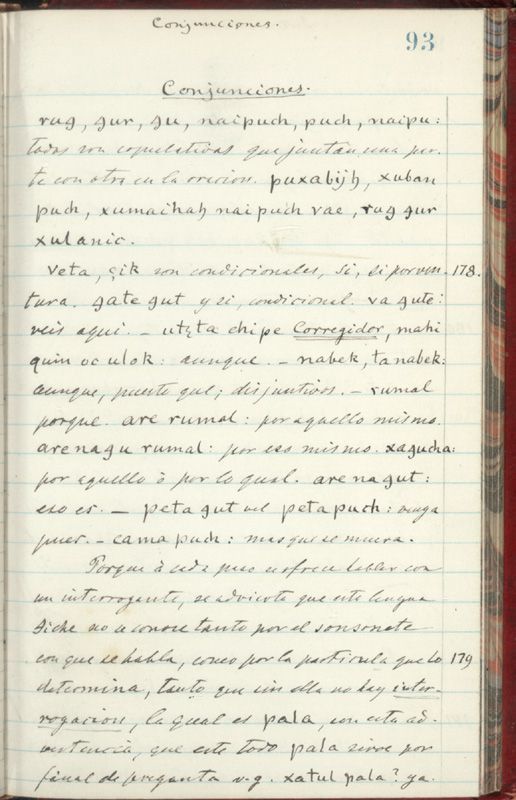 Conjunciones.
93
Conjunciones.
rug, gur, gu, naipuch, puch, naipu:
todas son copulativas que juntan una par-
te con otra en la oracion. puxabijh, xuban
puch, xumaihah naipuch vae, rug gur
xulanic.
veta, çik son condicionales, si, si por ven- 178.
tura. gate gut y si, condicional. va gute:
veis aqui. – utzta chipe Corregidor, mahi
quin oc ulok: aunque. – nabek, ta nabek:
aunque, puesto que; disjuntivos. – rumal
porque. are rumal: por aquello mismo.
arenagu rumal: por eso mismo. xagucha:
por aquello ò por lo qual. arenagut:
eso es. – peta gut vel peta puch: venga
pues. – cama puch: mas que se muera.
Porque à cada paso se ofrece hablar con
un interrogante, se advierte que esta lengua
giche no se conoce tanto por el sonsonete
con que se habla, como por la particula que lo 179
determina, tanto que sin ella no hay inter-
rogacion, la qual es pala, con esta ad-
vertencia, que este todo pala sirve por
final de preganta v.g. xatul pala? ya.